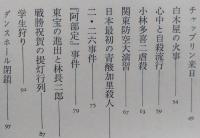 チャップリン来日 49
白木屋の火事 54
心中と自殺流行 59
小林多喜二虐殺 64
関東防空大演習
日本最初の青酸加里殺人 70
二・二六事件 75
『阿部定』事件 79
東宝の進出と林長二郎
戦勝祝賀の提灯行列 87
学生狩り
ダンスホール閉鎖 97